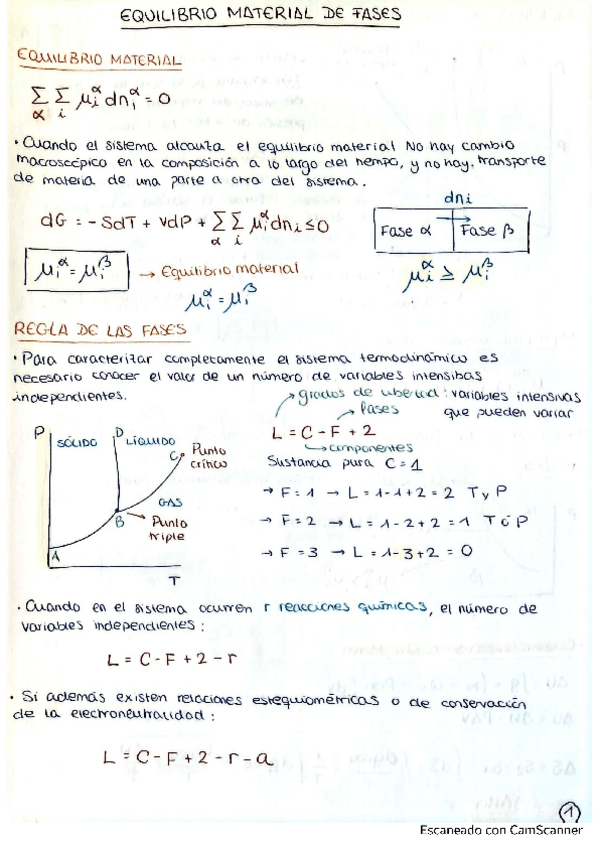 EQUILIBRIO MATERIAL DE FASES
EQUILIBRIO MATERIAL
∑α ∑i μiᵅ dniᵅ = 0
• Cuando el sistema alcanza el equilibrio material No hay cambio
macroscópico en la composición a lo largo del tiempo, y no hay transporte
de materia de una parte a otra del sistema.
dG = -SdT + VdP + ∑α ∑i μiᵅ dni ≤ 0
dni
Fase α
Fase β
μiᵅ = μiᵝ → Equilibrio material
μiᵅ = μiᵝ
μiᵅ ≥ μiᵝ
REGLA DE LAS FASES
• Para caracterizar completamente el sistema termodinámico es
necesario conocer el valor de un número de variables intensibas
independientes.
grados de libertad: variables intensivas
que pueden variar
fases
L = C - F + 2
componentes
Sustancia pura C = 1
→ F = 1 → L = 1-1+2 = 2 T y P
→ F = 2 → L = 1-2+2 = 1 T ó P
→ F = 3 → L = 1-3+2 = 0
P
SÓLIDO
D
LÍQUIDO
C
Punto
crítico
GAS
B
Punto
triple
A
T
• Cuando en el sistema ocurren r reacciones químicas, el número de
variables independientes:
L = C - F + 2 - r
• Si además existen relaciones estequiométricas o de conservación
de la electroneutralidad:
L = C - F + 2 - r - a
1
Escaneado con CamScanner